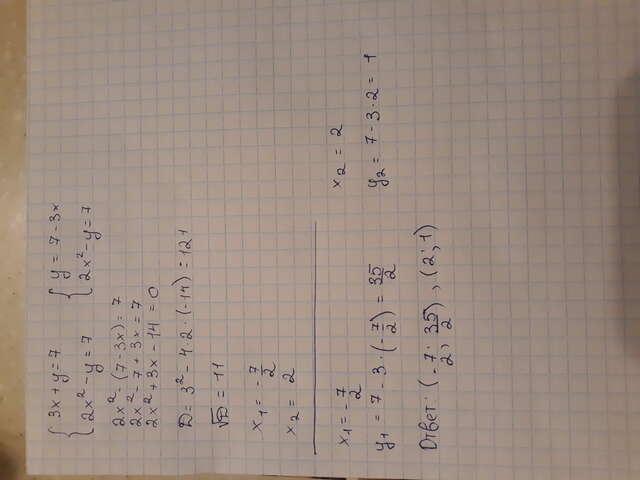 { 3x + y = 7 { y = 7 - 3x
2x² - y = 7 2x² - y = 7
2x² - (7 - 3x) = 7
2x² - 7 + 3x = 7
2x² + 3x - 14 = 0
D = 3² - 4 · 2 · (-14) = 121
√D = 11
x₁ = -7/2
x₂ = 2
x₁ = -7/2 x₂ = 2
y₁ = 7 - 3 · (-7/2) = 35/2 y₂ = 7 - 3 · 2 = 1
Ответ: (-7/2; 35/2), (2; 1)